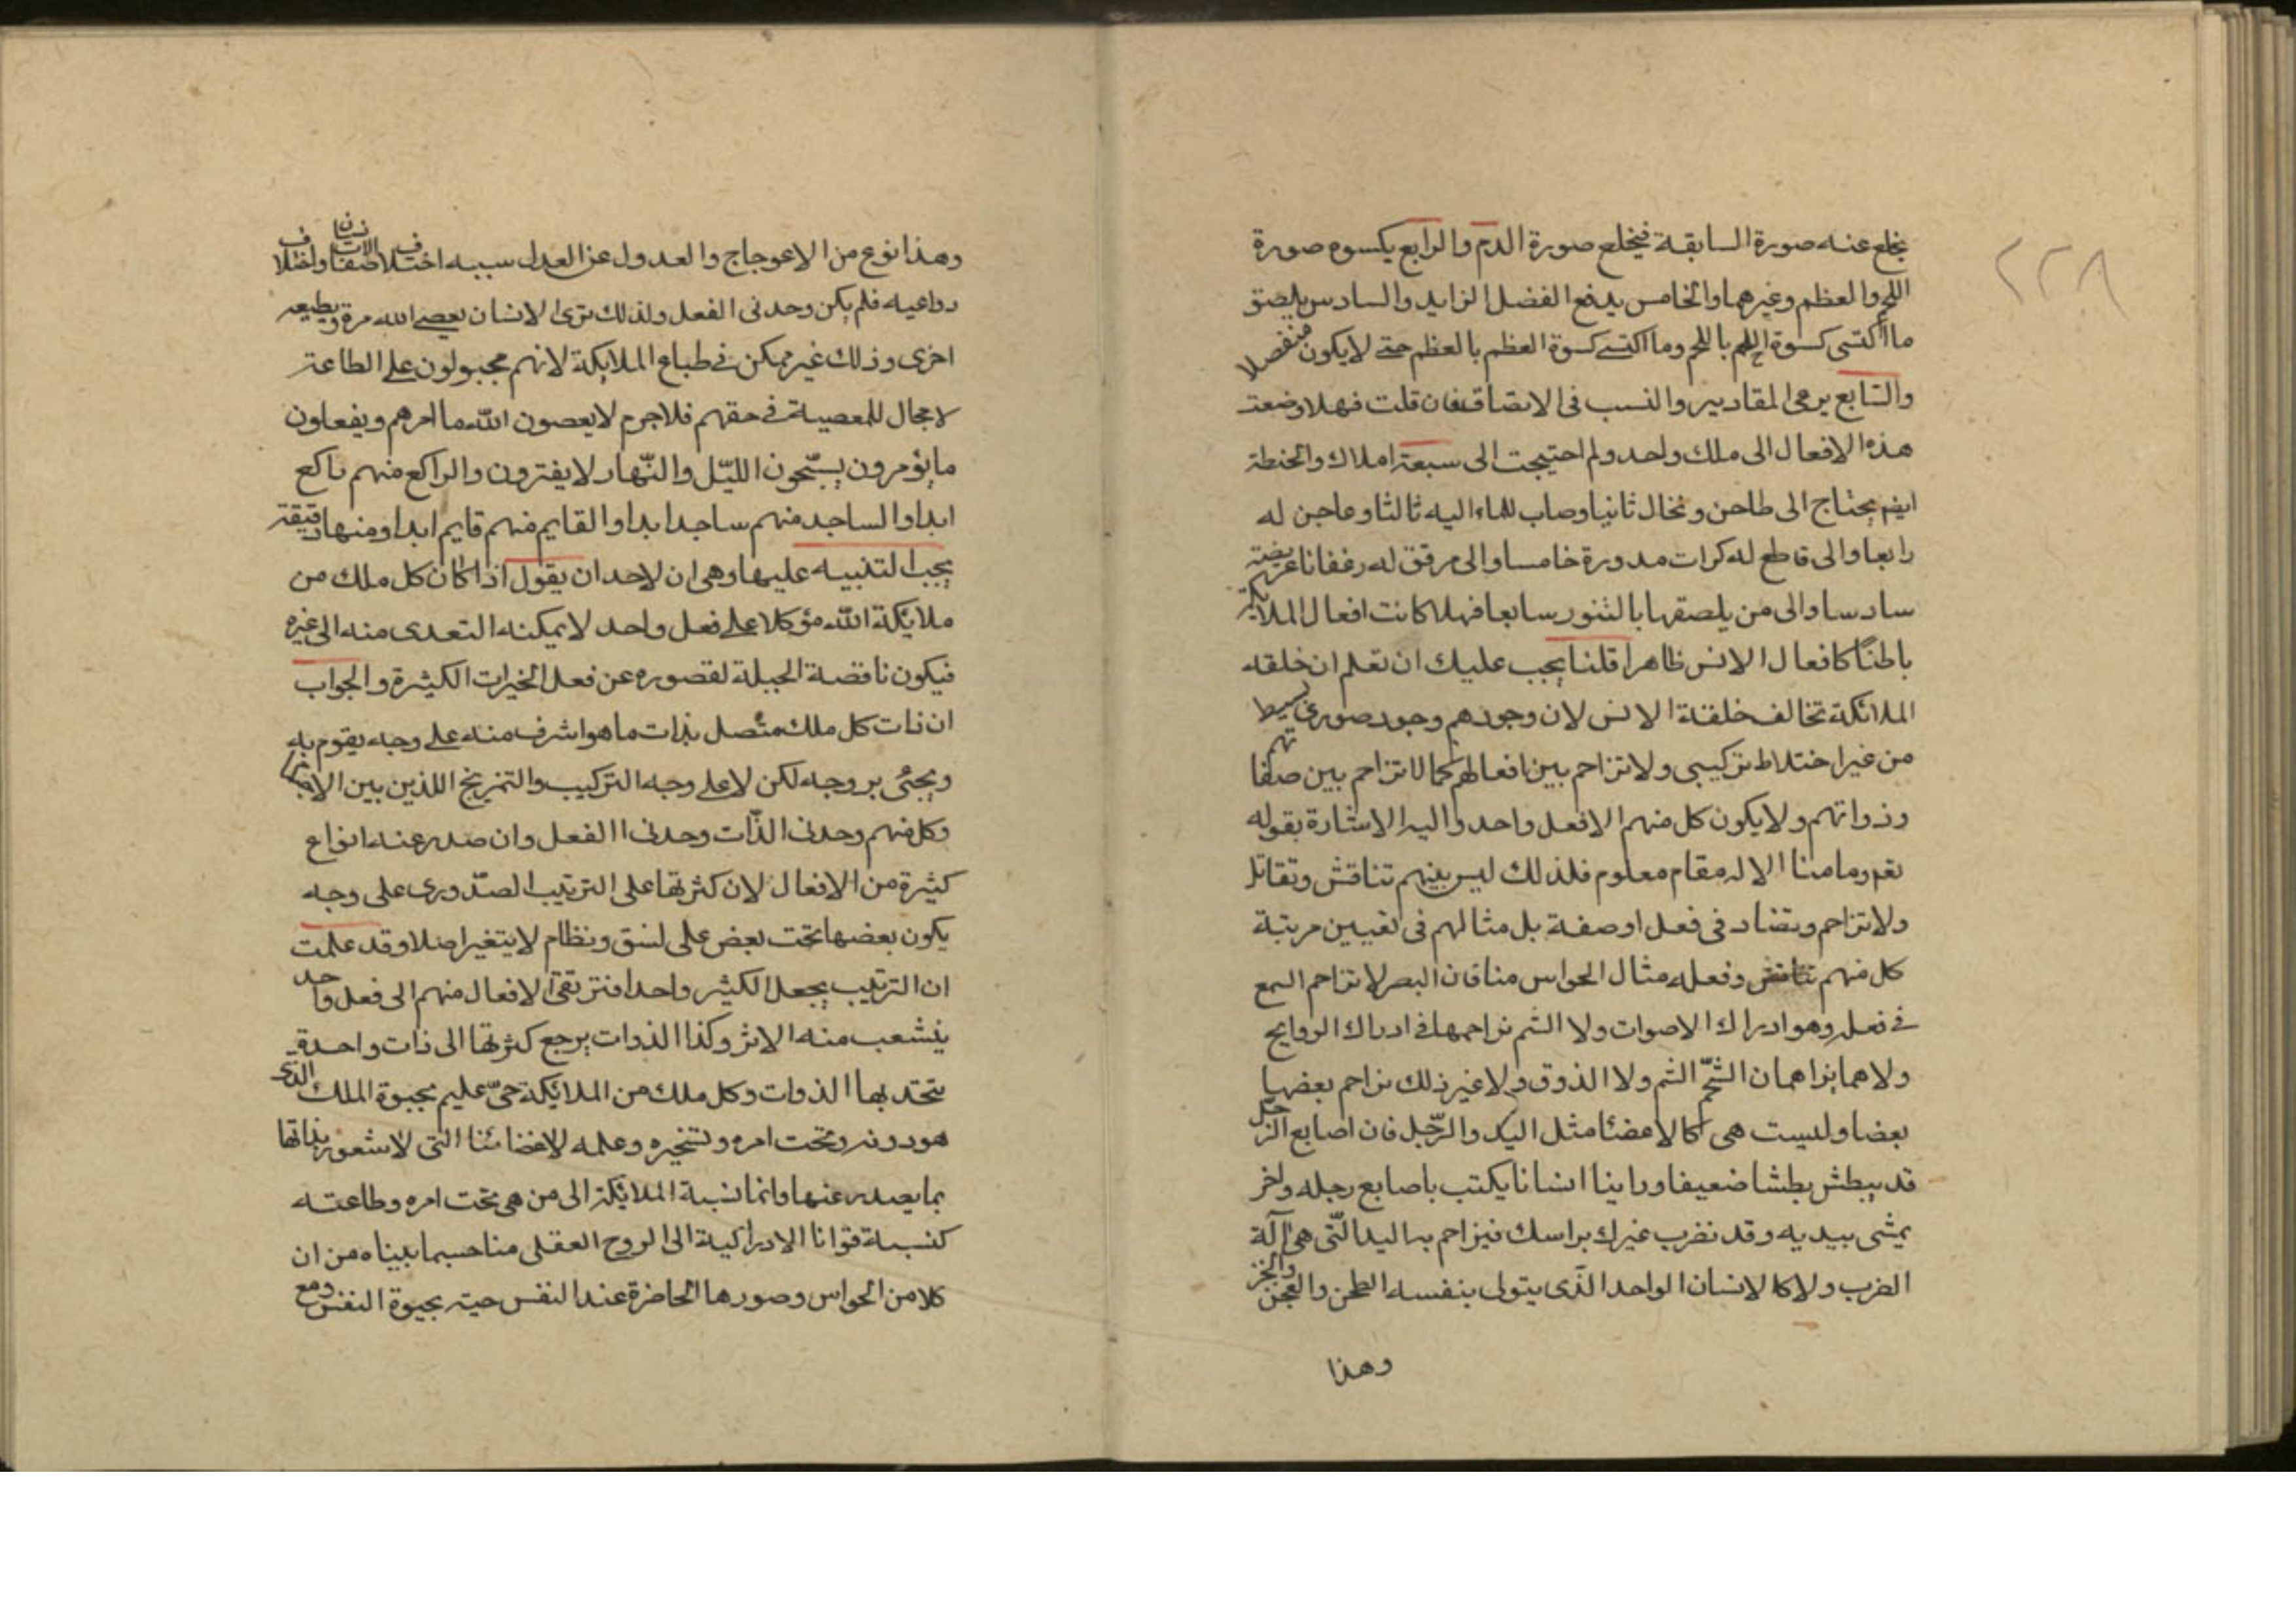 ٢٢٨
يخلع عنه صورة السابقة فيخلع صورة الدم والرابع يكسوه صورة
اللحم والعظم وغيرهما والخامس يدفع الفضل الزايد والسادس يلصق
ما اكتسى كسوة اللحم باللحم وما اكتسى كسوة العظم بالعظم حتى لا يكون منفصلا
والسّابع يرعى المقادير والنسب فى الالصاق فان قلت فهلا وضعت
هذه الافعال الى ملك واحد ولم احتيجت الى سبعة املاك والحنطة
ايضا يحتاج الى طاحن ونخال ثانيا وصاب للماء اليه ثالثا وعاجن له
رابعا والى قاطع له كرات مدورة خامسا والى مرقق له رغفانا عريضة
سادسا والى من يلصقها بالتنور سابعا فهلا كانت افعال الملايكة
باطنًا كافعال الانس ظاهرا قلنا يجب عليك ان تعلم ان خلقه
الملائكة تخالف خلقة الانس لان وجودهم وجود صورى بسيط
من غير اختلاط تركيبى ولا تزاحم بين افعالهم كما لا تزاحم بين صفاتهم
وذواتهم ولا يكون كل منهم الا فعل واحد واليه الاشارة بقوله
تعم وما منا الا له مقام معلوم فلذلك ليس بينهم تناقش وتقاتل
ولا تزاحم وتضاد فى فعل او صفة بل مثالهم فى تعيين مرتبة
كل منهم وفعله مثال الحواس منا فان البصر لا تزاحم السمع
فى فعله وهو ادراك الاصوات ولا الشم تزاحمها فى ادراك الروايح
ولا هما يزاحمان الشمّ الشم ولا الذوق ولا غير ذلك تزاحم بعضها
بعضا وليست هى كالاعضاء مثل اليد والرّجل فان اصابع الرّجل
قد يبطش بطشا ضعيفا وراينا انسانا يكتب باصابع رجله واخر
يمشى بيديه وقد تضرب غيرك براسك فيزاحم به اليد الّتى هى آلة
الضرب ولا كالانسان الواحد الذّى يتولى بنفسه الطحن والعجن والخبز
وهذا
وهذا نوع من الاعوجاج والعدول عن العدل سببه اختلاف صفات الانسان واختلاف
دواعيه فلم يكن وحدنى الفعل ولذلك ترى الانسان يعصى الله مرة ويطيعه
اخرى وذلك غير ممكن فى طباع الملايكة لانهم مجبولون على الطاعة
لا مجال للمعصية فى حقهم فلاجرم لا يعصون الله ما امرهم ويفعلون
ما يؤمرون يسبّحون اللّيل والنّهار لا يفترون والراكع منهم راكع
ابدا والساجد منهم ساجد ابدا والقايم منهم قايم ابدا ومنها دقيقة
يجب التنبيه عليها وهى ان لاحد ان يقول اذا كان كل ملك من
ملائكة الله مؤكلا على فعل واحد لا يمكنه التعدى منه الى غيره
فيكون ناقصة الجبلة لقصوره عن فعل الخيرات الكثيرة والجواب
ان ذات كل ملك متّصل بذات ما هو اشرف منه على وجه يقوم به
ويجئى بروجه لكن لا على وجه التركيب والتمزيج اللذين بين الاجزا
وكل منهم وحدنى الذّات وحدنى الفعل وان صدر عنه انواع
كثيرة من الافعال لان كثرتها على الترتيب الصّدورى على وجه
يكون بعضها تحت بعض على نسق ونظام لا يتغير اصلا وقد علمت
ان الترتيب يجعل الكثير واحدا فترتقى الافعال منهم الى فعل واحد
ينشعب منه الاثر وكذا الذوات يرجع كثرتها الى ذات واحدة
يتحد بها الذوات وكل ملك من الملائكة حىّ عليم بحيوة الملك الذى
هو دونه وتحت امره وتسخيره وعلمه لا اعضائنا التى لا شعور بذاتها
بما يصدر عنها وانما نسبة الملائكة الى من هى تحت امره وطاعته
كنسبة قوانا الادراكية الى الروح العقلى منا حسبما بيناه من ان
كلا من الحواس وصورها الحاضرة عند النفس حيّه بحيوة النفس ومع